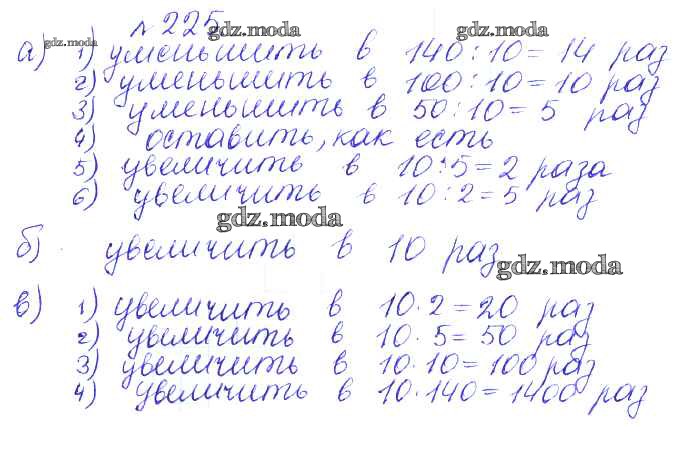 № 225
gdz.moda gdz.moda gdz.moda
а) 1) уменьшить в 140 : 10 = 14 раз
2) уменьшить в 100 : 10 = 10 раз
3) уменьшить в 50 : 10 = 5 раз
4) оставить, как есть
5) увеличить в 10 : 5 = 2 раза
6) увеличить в 10 : 2 = 5 раз
gdz.moda
б) увеличить в 10 раз
gdz.moda
в) 1) увеличить в 10 · 2 = 20 раз
2) увеличить в 10 · 5 = 50 раз
3) увеличить в 10 · 10 = 100 раз
4) увеличить в 10 · 140 = 1400 раз